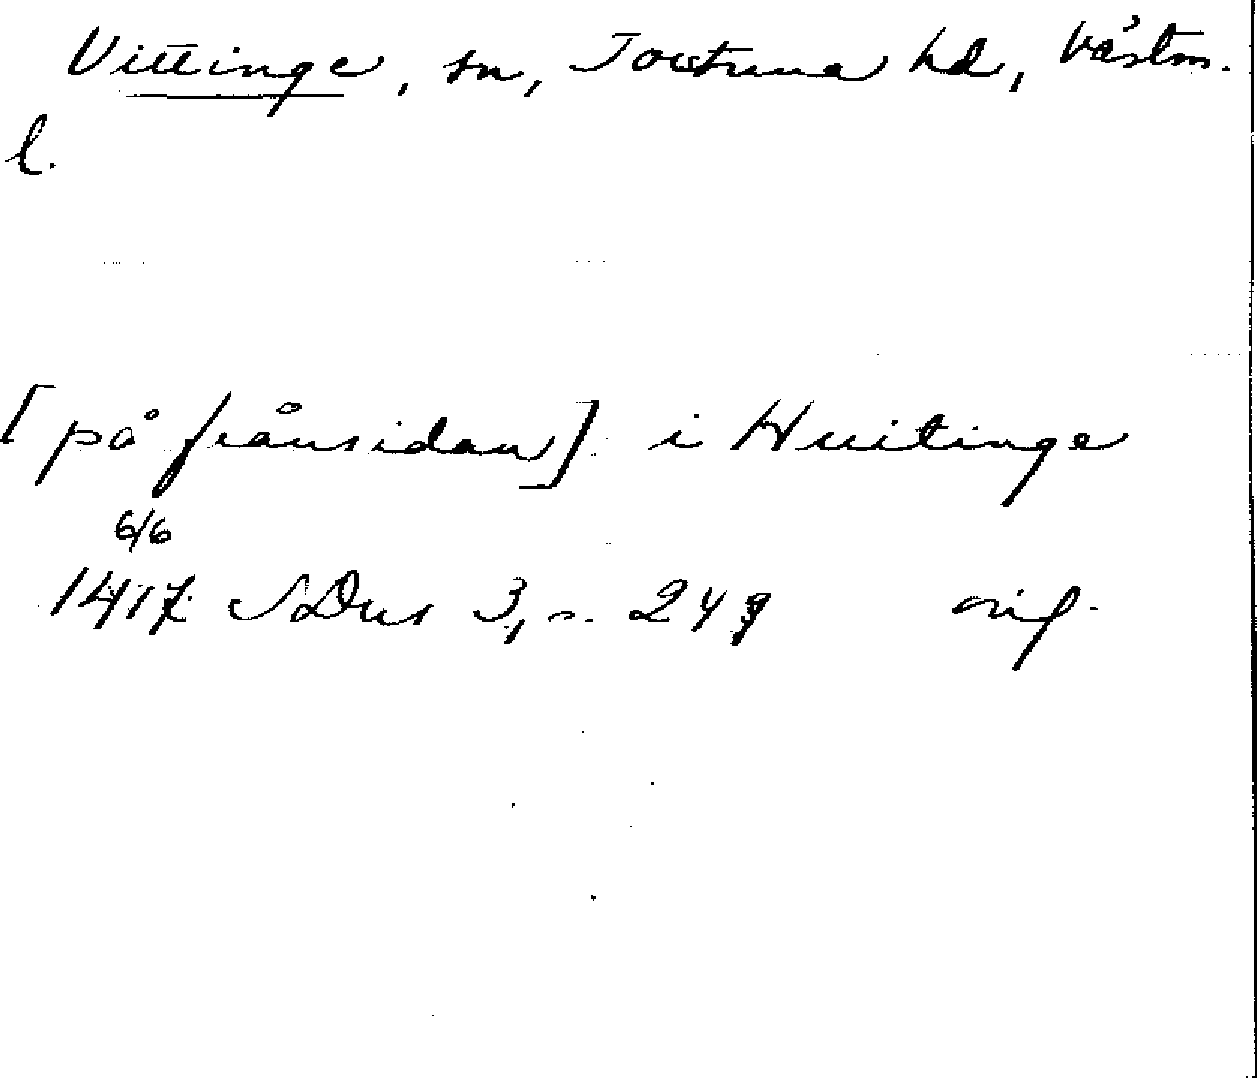 Vittinge, sn, Torstuna hd, Västm.
l.
[på frånsidan] i Huitinge
6/6
1417 SDns 3, s. 249 orig.